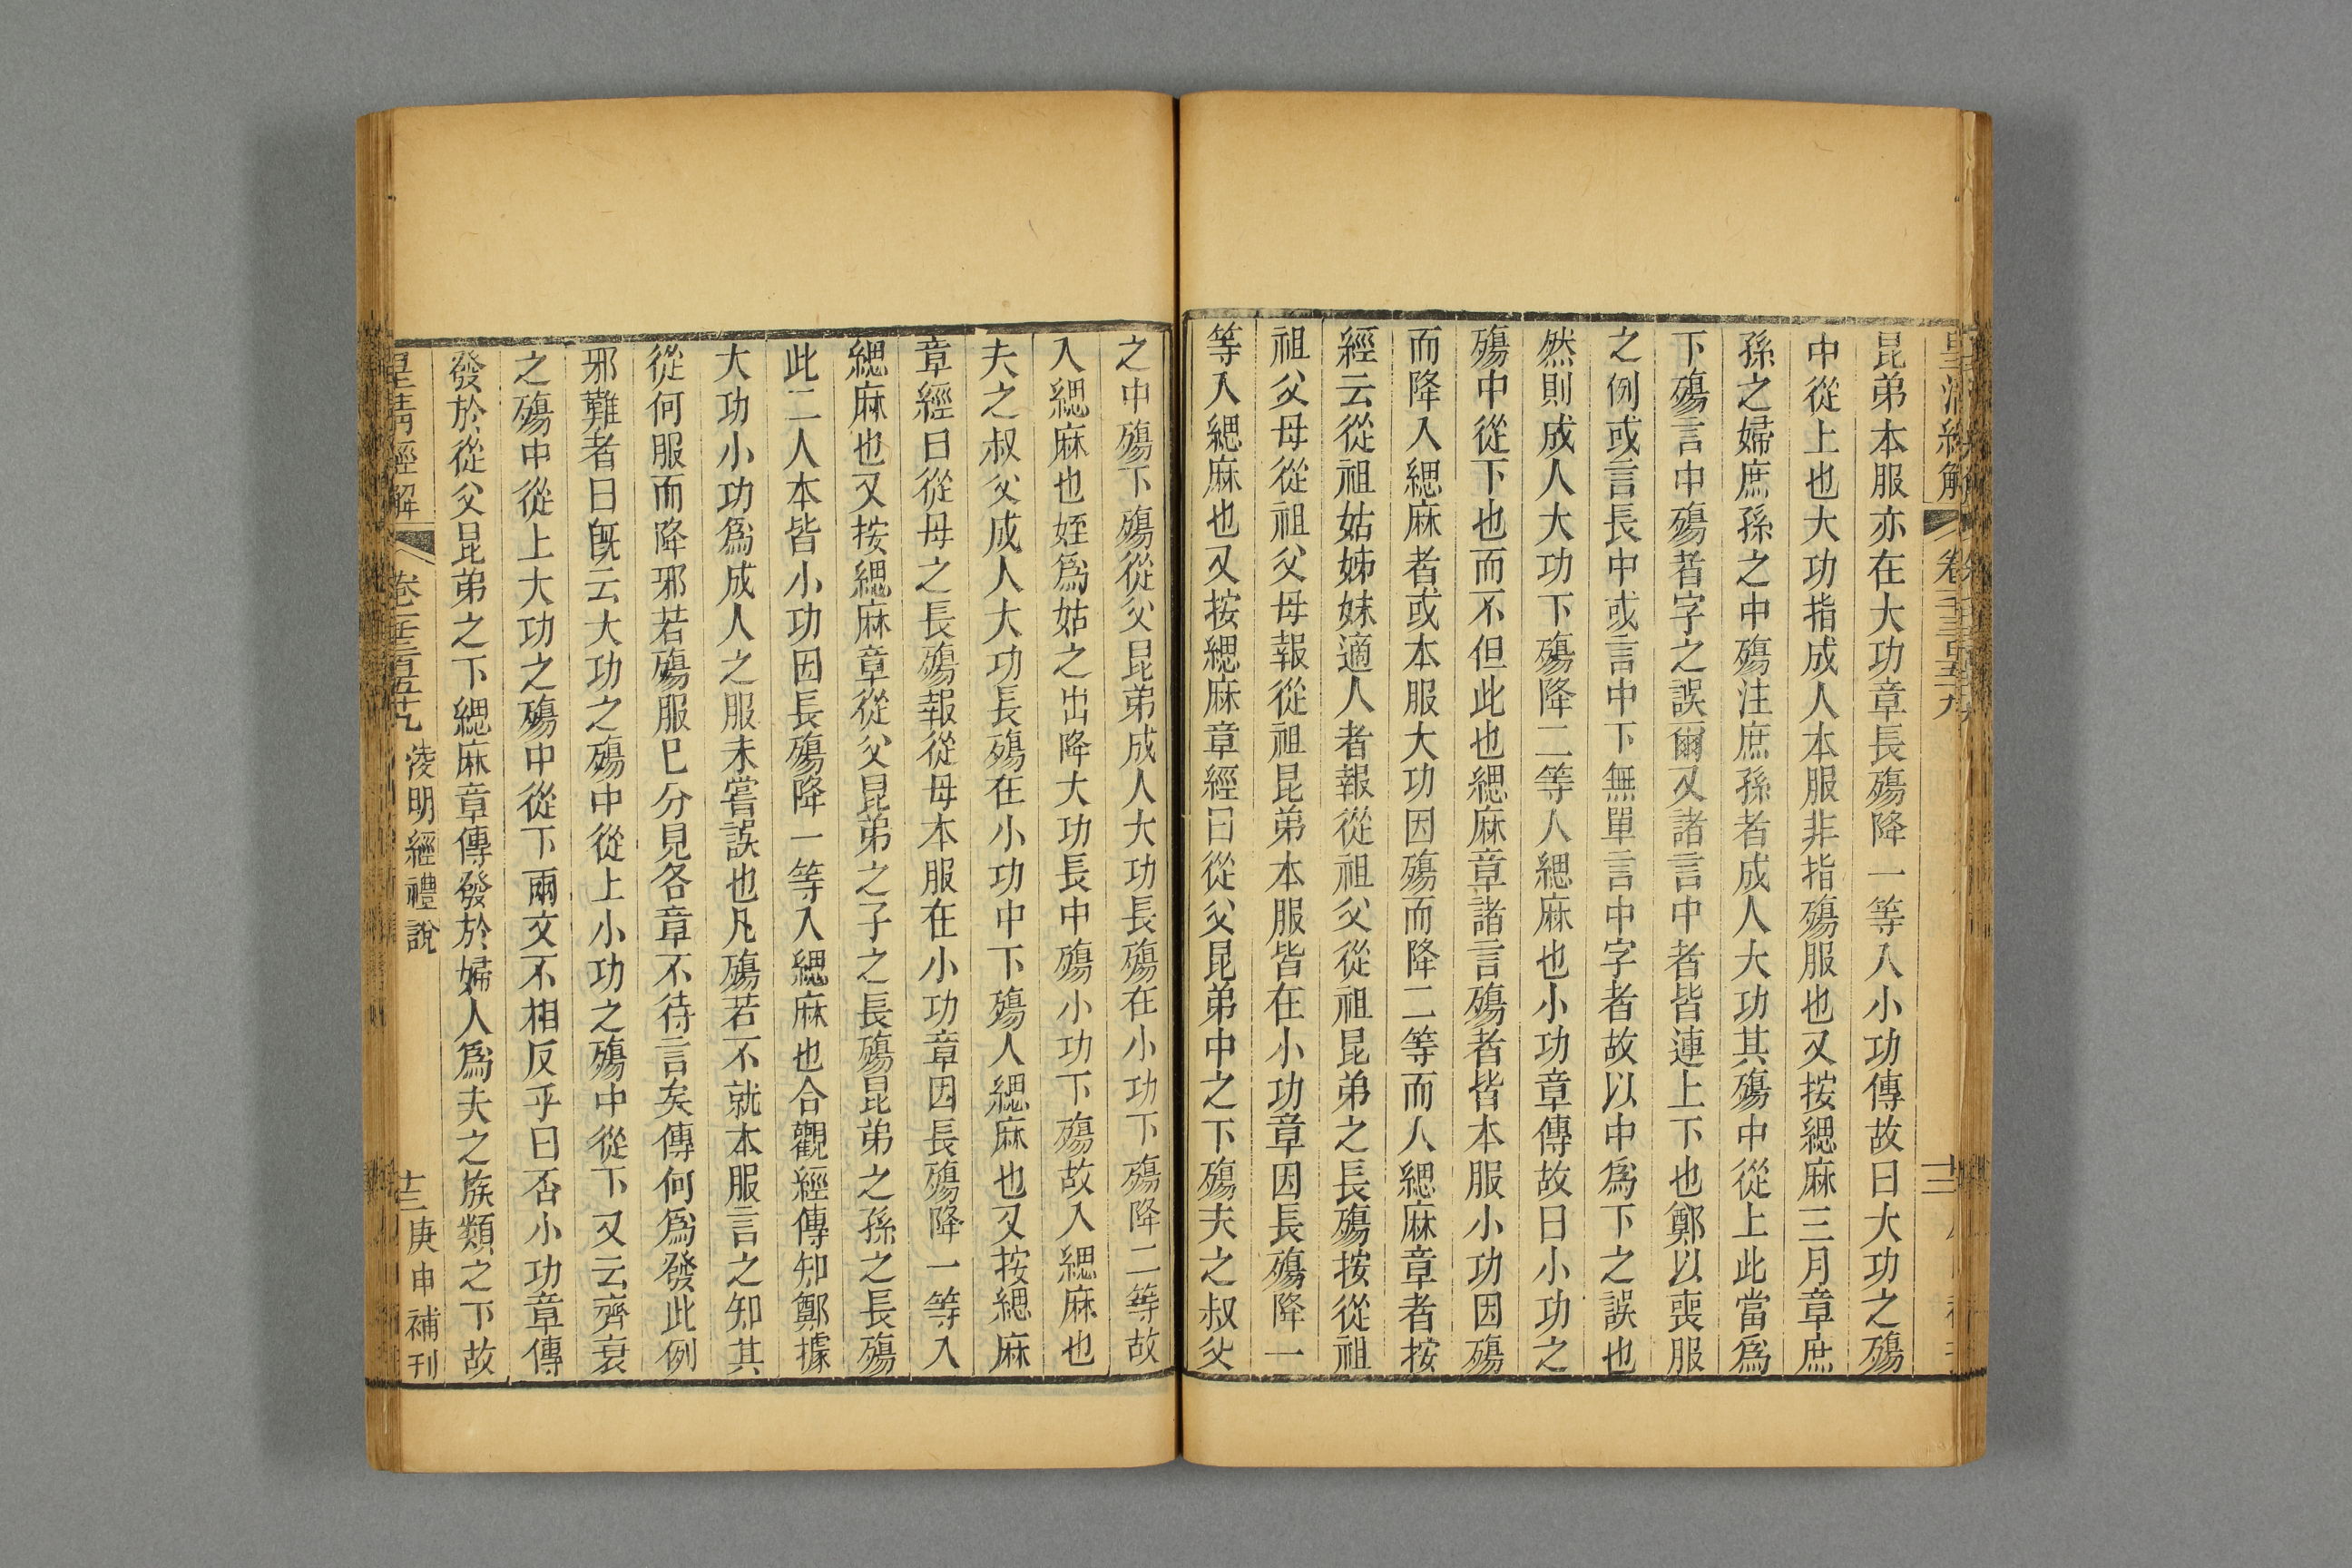 皇清經解
昆弟本服亦在大功章長殤降一等入小功傳故曰大功之殤
中從上也大功指成人本服非指殤服也又按緦麻三月章庶
孫之婦庶孫之中殤注庶孫者成人大功其殤中從上此當爲
下殤言中殤者字之誤爾又諸言中者皆連上下也鄭以喪服
之例或言長中或言中下無單言中字者故以中爲下之誤也
然則成人大功下殤降二等人緦麻也小功章傳故曰小功之
殤中從下也而不但此也緦麻章諸言殤者皆本服小功因殤
而降入緦麻者或本服大功因殤而降二等而人緦麻章者按
經云從祖姑姊妹適人者報從祖父從祖昆弟之長殤按從祖
祖父母從祖父母報從祖昆弟本服皆在小功章因長殤降一
等入緦麻也又按緦麻章經曰從父昆弟中之下殤夫之叔父
之中殤下殤從父昆弟成人大功長殤在小功下殤降二等故
入緦麻也姪爲姑之出降大功長中殤小功下殤故入緦麻也
夫之叔父成人大功長殤在小功中下殤人緦麻也又按緦麻
章經曰從母之長殤報從母本服在小功章因長殤降一等入
緦麻也又按緦麻章從父昆弟之子之長殤昆弟之孫之長殤
此二人本皆小功因長殤降一等入緦麻也合觀經傳知鄭據
大功小功爲成人之服未嘗誤也凡殤若不就本服言之知其
從何服而降邪若殤服已分見各章不待言矣傳何爲發此例
邪難者曰旣云大功之殤中從上小功之殤中從下又云齊衰
之殤中從上大功之殤中從下兩文不相反乎曰否小功章傳
發於從父昆弟之下緦麻章傳發於婦人爲夫之族類之下故
皇清經解 卷一千三百五十九 淩明經禮說 十三 庚申補刊